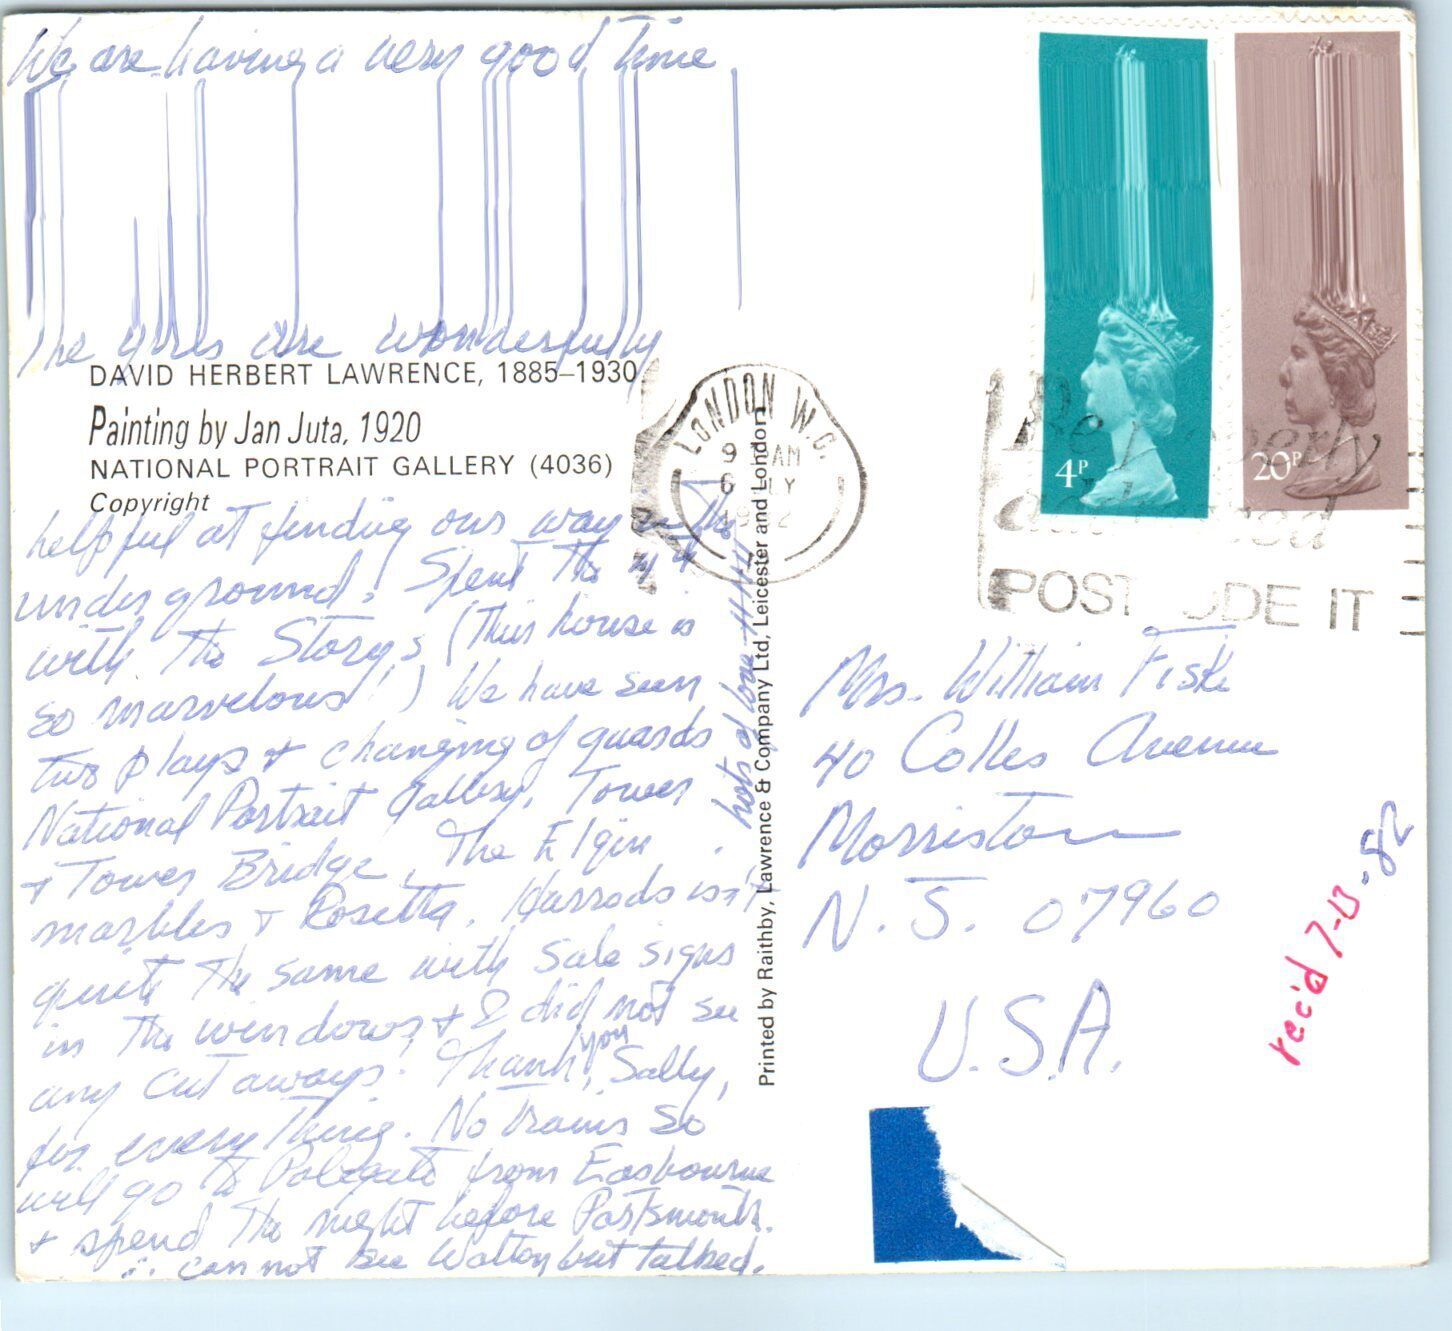 We are having a very good time
The girls are wonderfully
DAVID HERBERT LAWRENCE, 1885–1930
Painting by Jan Juta, 1920
NATIONAL PORTRAIT GALLERY (4036)
Copyright
helpful at finding our way in the
underground! Spent the
with the Storys (This house is
so marvelous!) We have seen
two plays + changing of guards
National Portrait Gallery, Tower
+ Tower Bridge, The Elgin
marbles + Rosetta. Harrods isn't
quite the same with sale signs
in the windows + I did not see
any cut aways. Thank you, Sally,
for everything. No trains so
will go to from Eastbourne
+ spend the night before Portsmouth.
∴ can not see Walton but talked.
lots of love
Printed by Raithby, Lawrence & Company Ltd, Leicester and London
LONDON W.C.
9 AM
6 LY
4P
20P
POST ODE IT
Mrs. William Fiske
40 Colles Avenue
Morristown
N. J. 07960
U.S.A.
rec'd 7-13-82